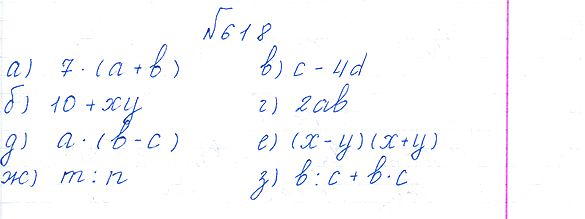 №618
а) 7·(a+b) в) c-4d
б) 10+xy г) 2ab
д) a·(b-c) е) (x-y)(x+y)
ж) m:n з) b:c+b·c